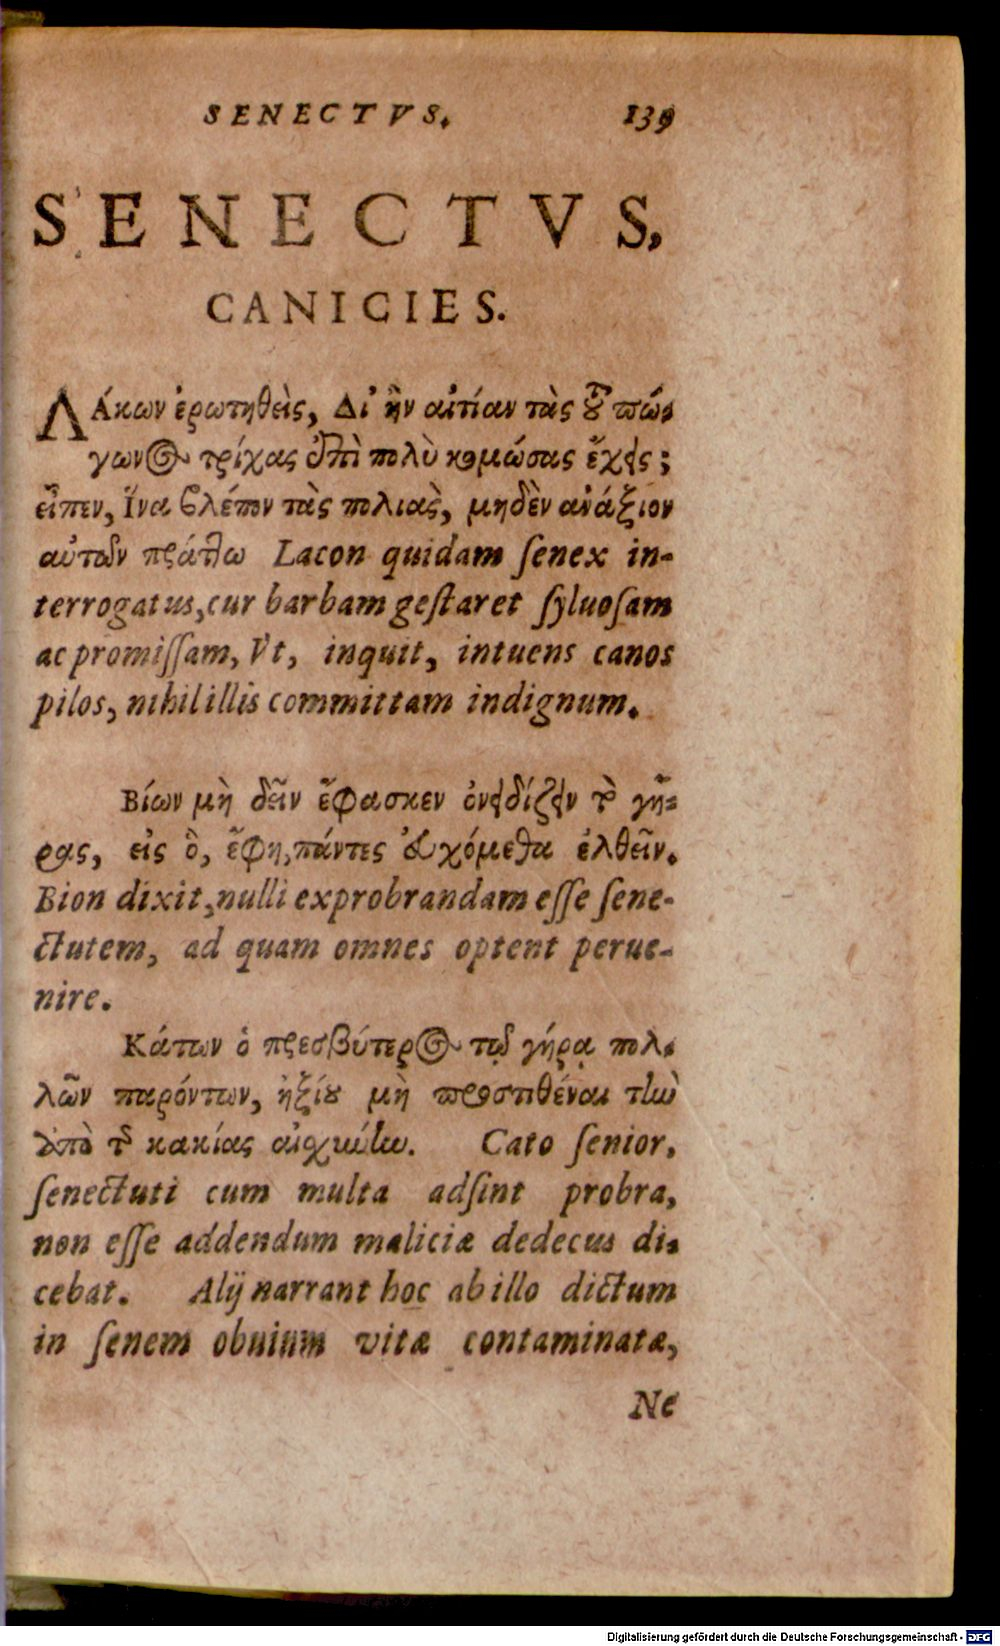 SENECTVS. 139
SENECTVS,
CANICIES.
ΛΆκων ἐρωτηθεὶς, Δι’ ἣν αἰτίαν τὰς τοῦ πώ-
γωνος τρίχας ἐπὶ πολὺ κομώσας ἔχεις;
εἶπεν, ἵνα βλέπων τὰς πολιὰς, μηδὲν ἀνάξιον
αὐτῶν πράττω Lacon quidam ſenex in-
terrogatus, cur barbam geſtaret ſyluoſam
ac promiſſam, Vt, inquit, intuens canos
pilos, nihil illis committam indignum.
Βίων μὴ δεῖν ἔφασκεν ὀνειδίζειν τὸ γῆ-
ρας, εἰς ὃ, ἔφη, πάντες εὐχόμεθα ἐλθεῖν.
Bion dixit, nulli exprobrandam eſſe ſene-
ctutem, ad quam omnes optent perue-
nire.
Κάτων ὁ πρεσβύτερος τῷ γήρᾳ πολ-
λῶν παρόντων, ἠξίου μὴ προστιθέναι τὴν
ἀπὸ τῆς κακίας αἰσχύνην. Cato ſenior,
ſenectuti cum multa adſint probra,
non eſſe addendum maliciæ dedecus di-
cebat. Alij narrant hoc ab illo dictum
in ſenem obuium vitæ contaminatæ,
Ne
Digitalisierung gefördert durch die Deutsche Forschungsgemeinschaft - DFG